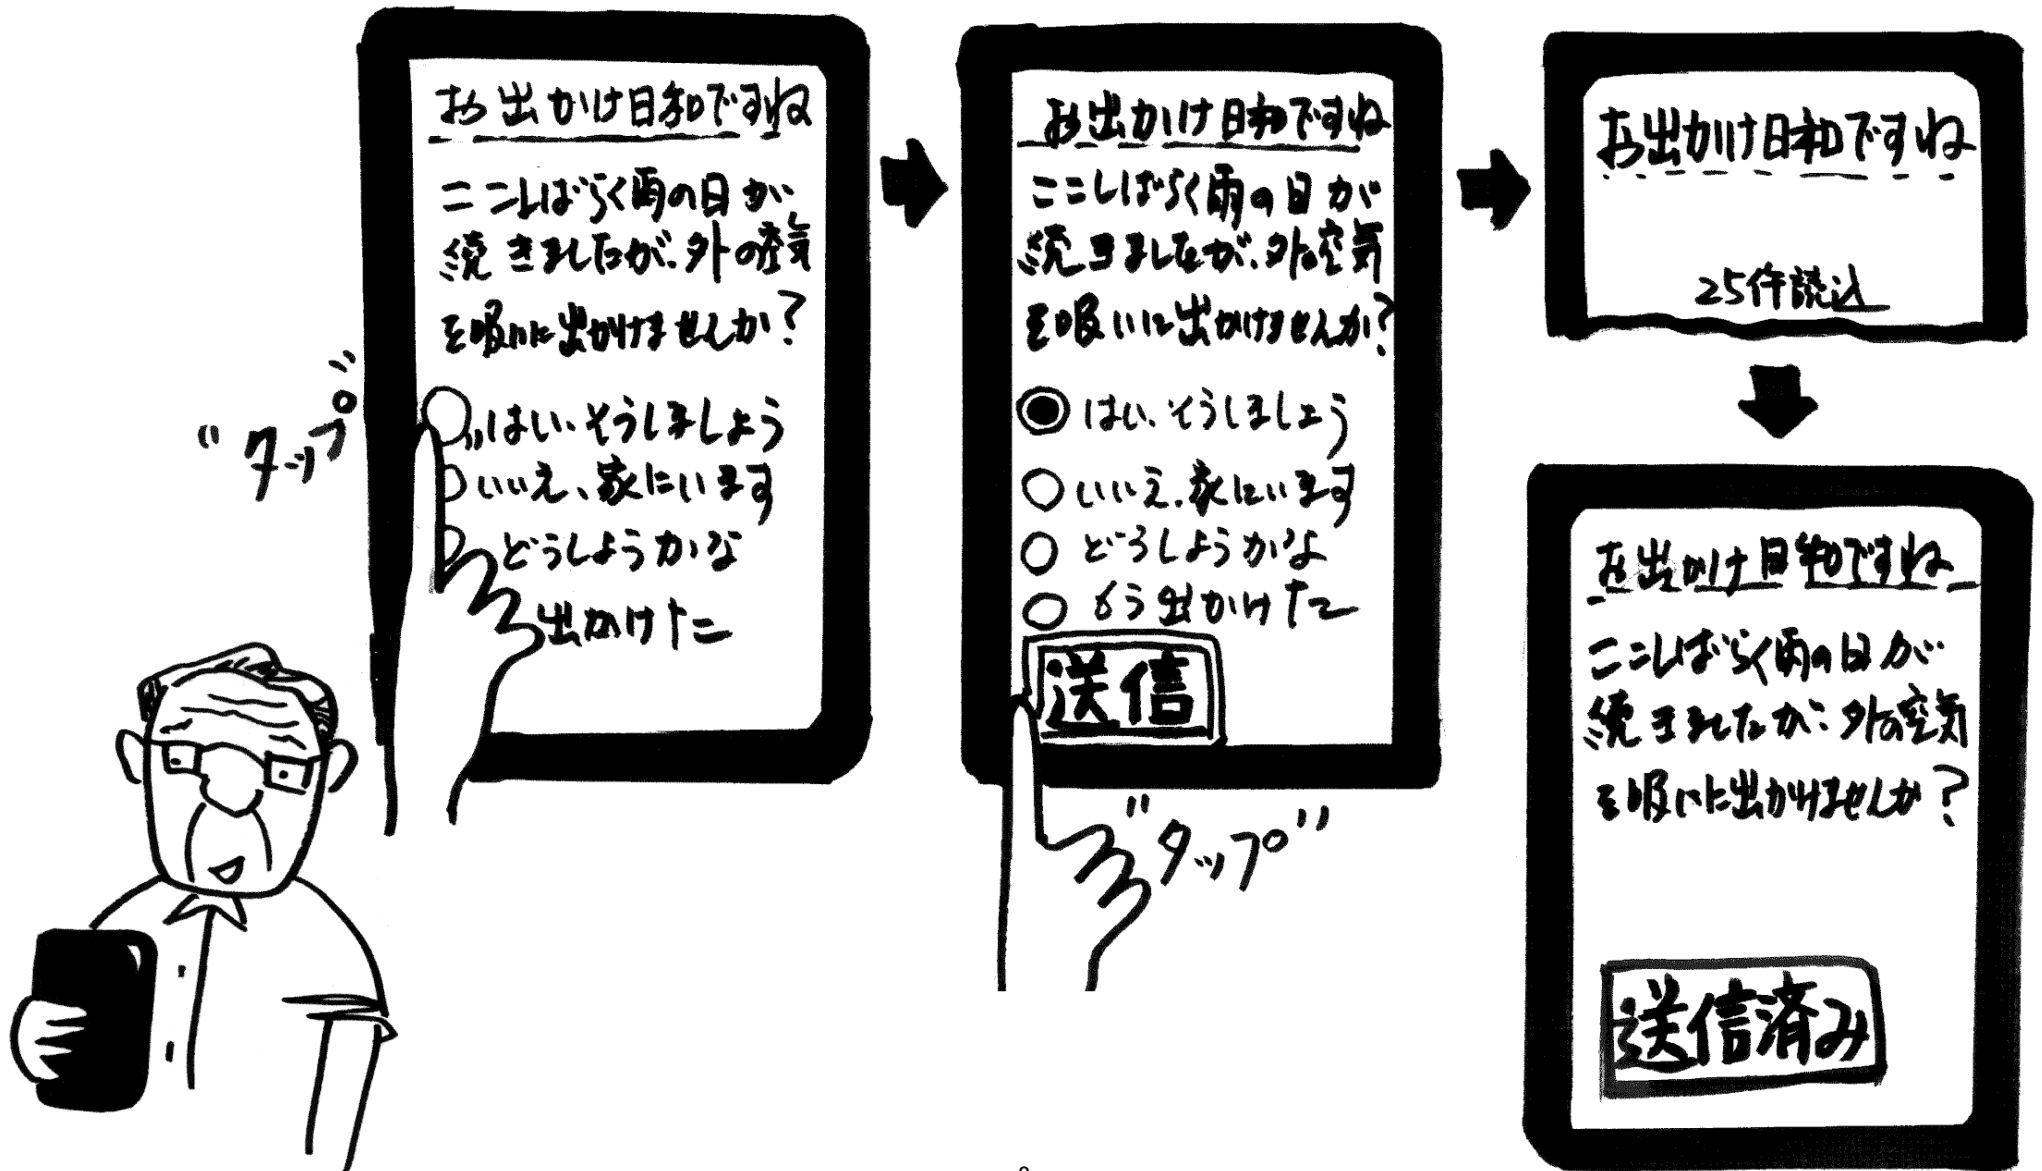 お出かけ日和ですね
ここしばらく雨の日が
続きましたが、外の空気
を吸いに出かけませんか?
はい、そうしましょう
いいえ、家にいます
どうしようかな
出かけた
"タップ"
お出かけ日和ですね
ここしばらく雨の日が
続きましたが、外の空気
を吸いに出かけませんか?
はい、そうしましょう
いいえ、家にいます
どうしようかな
もう出かけた
送信
"タップ"
お出かけ日和ですね
25件読込
お出かけ日和ですね
ここしばらく雨の日が
続きましたが、外の空気
を吸いに出かけませんか?
送信済み